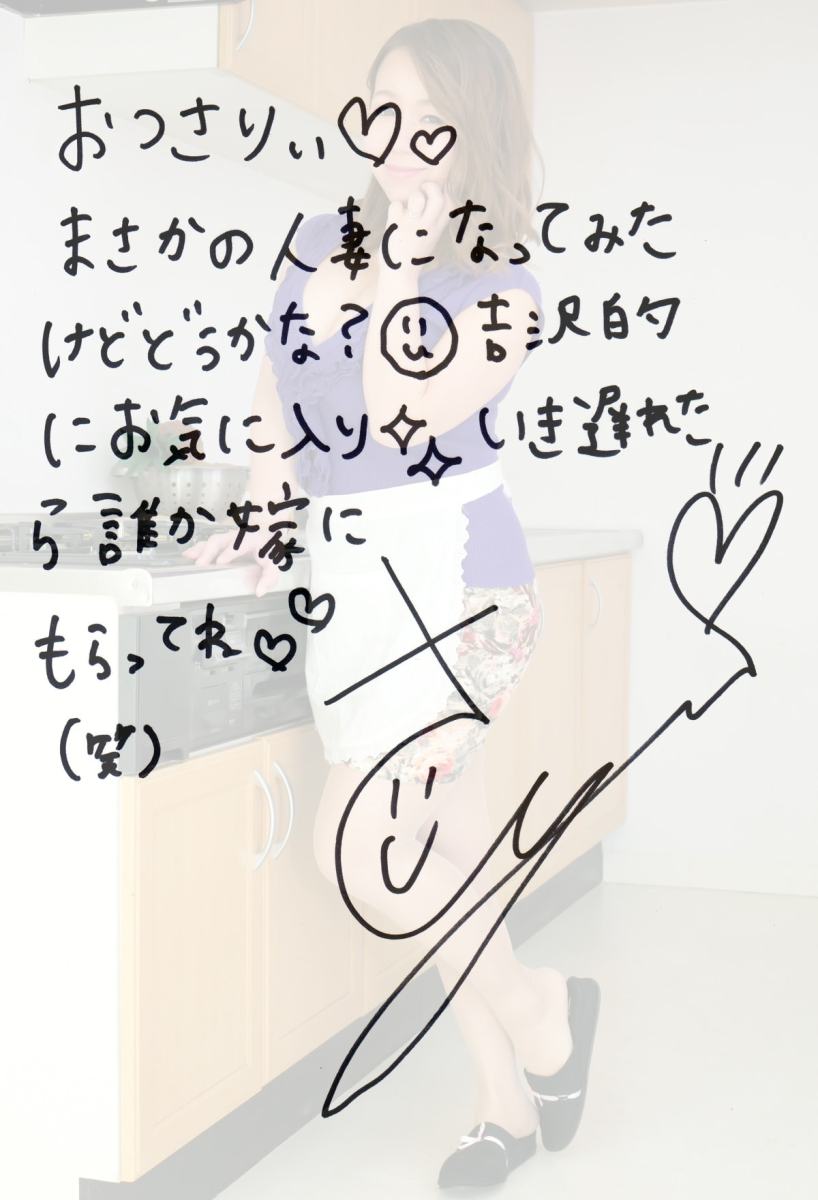 おっさりぃ♡♡
まさかの人妻になってみた
けどどぅかな?吉沢的
にお気に入り✧✧いき遅れた
ら誰か嫁に
もらってね♡♡
(笑)